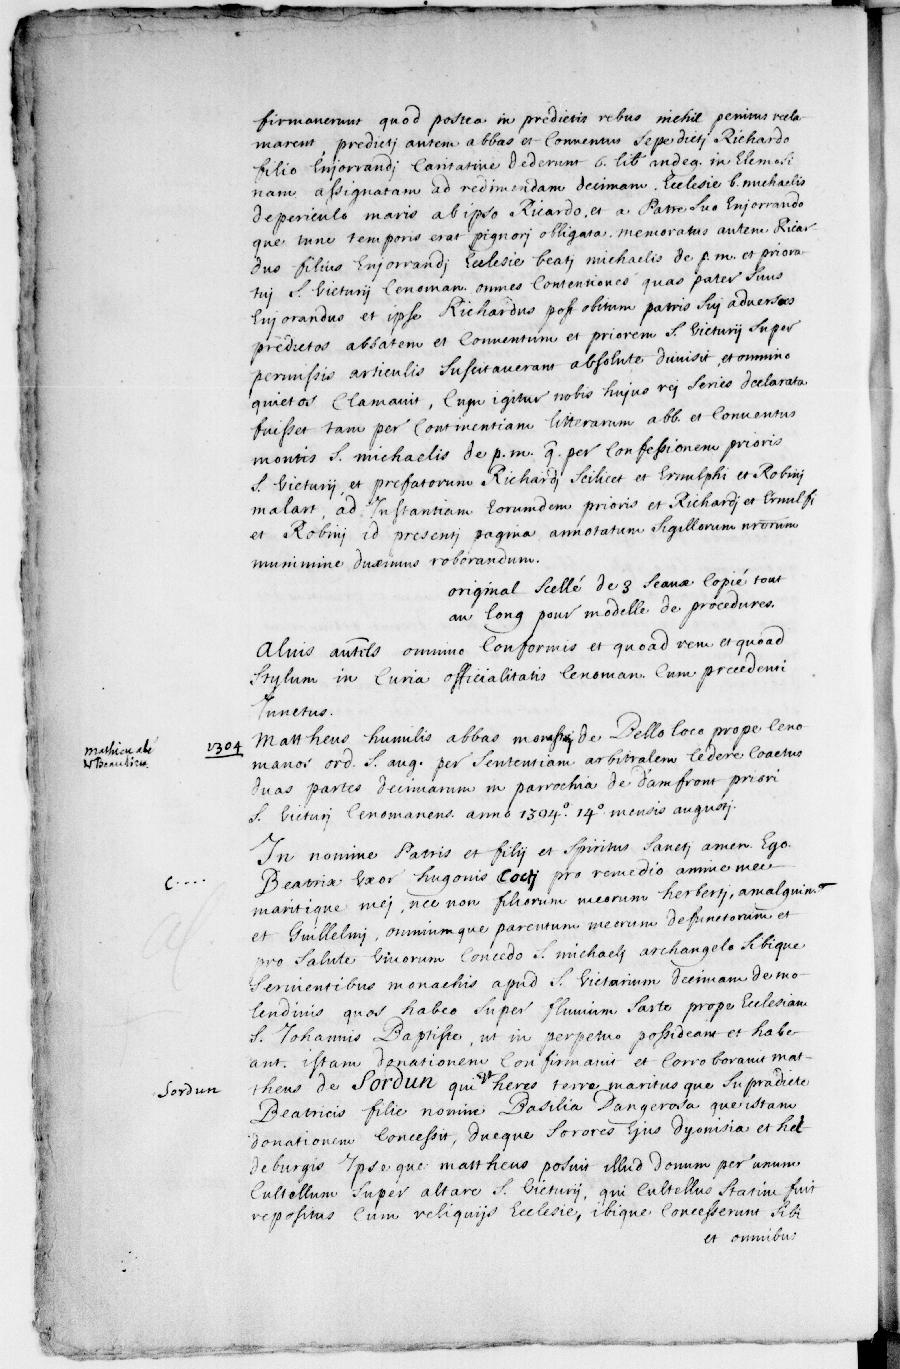 firmaverunt quod postea in predictis rebus nichil penitus recla-
marent, predictj autem abbas et Conventus Sepe dictj Richardo
filio Enjorrandj Caritative dederunt 6. lib andeg. in Elemosi
nam assignatam ad redimendam decimam. Ecclesie b. michaelis
de periculo maris ab ipso Ricardo, et a Patre Suo Enjorrando
que tunc temporis erat pignorj obligata. memoratus autem Ricar
dus filius Enjorrandj Ecclesie beatj michaelis de p. m. et priora
tuj S. Victurij Cenoman. omnes Contentiones quas pater Suus
Enjorandus et ipse Richardus post obitum patris Suj adversos
predictos abbatem et Conventum et priorem S. Victurij Super
permissis articulis Suscitaverant absolute dimisit, et omnino
quietos Clamavit, Cum igitur nobis hujus rej Series declarata
fuisset tam per Continentiam litterarum abb. et Conventus
montis S. michaelis de p. m. q. per Confessionem prioris
S. Victurij et prefatorum Richardj Scilicet et Ernulphi et Robinj
malart, ad Instantiam Eorumdem prioris et Richardj et Ernulfi
et Robinj id presentj pagina annotatum Sigillorum nrorum
munimine duximus roborandum.
original Scellé de 3 Seaux Copié tout
au long pour modelle de procedures.
Aluis omnino Conformis et quoad rem et quoad
Stylum in Curia officialitatis Cenoman. Cum precedenti
Junctus.
mathieu abé
de Beaulieu.
1304 Mattheus humilis abbas monastrij de Bello loco prope Ceno
manos ord. S. aug. per Sententiam arbitralem Cedere Coactus
duas partes decimarum in parrochia de damfront priori
S. Victurj Cenomanens. anno 1304° 14° mensis augustj.
In nomine Patris et filij et Spiritus Sanctj amen. Ego
C.... Beatrix Uxor hugonis Coctj pro remedio anime mee
maritique mej, nec non filiorum meorum herbertj, amalguin
et Guillelmj, omniumque parentum meorum defunctorum et
pro Salute Vivorum Concedo S. michaelj archangelo Sibique
Servientibus monachis apud S. Victurium decimam de mo-
lendinis quos habeo Super fluvium Sarte prope Ecclesiam
S. Johannis Baptiste, ut in perpetuo possideant et habe
ant. istam donationem Confirmavit et Corroboravit mat-
Sordun theus de Sordun qui Et heres terre maritusque Supradicte
Beatricis filie nomine Basilia Dangerosa que istam
donationem Concessit, dueque Sorores Ejus dyonisia et hel
deburgis Ipse que mattheus posuit illud donum per unum
Cultellum Super altare S. Victurij, qui Cultellus Statim fuit
repositus Cum reliquijs Ecclesie, ibique Concesserunt Sibi
et omnibus